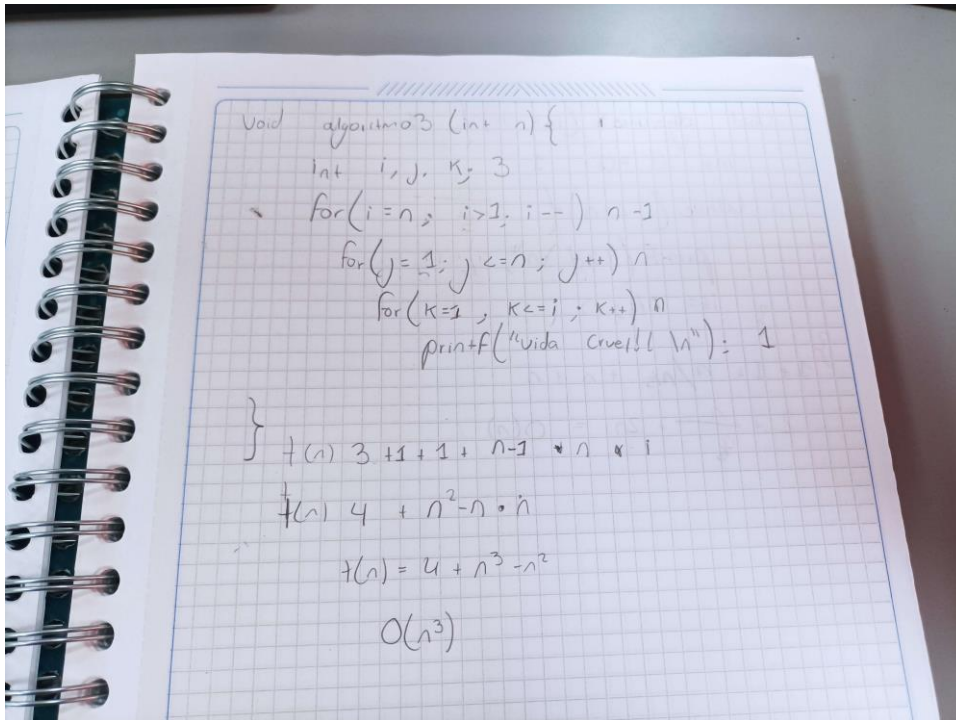 void algoritmo3 (int n) { 1
int i, j, k; 3
for(i=n; i>1; i--) n-1
for(j=1; j<=n; j++) n
for(k=1, k<=i; k++) n
printf("vida cruel!! \n"); 1
}
t(n) 3 +1 + 1 + n-1 * n * i
t(n) 4 + n²-n · n
t(n) = 4 + n³ -n²
O(n³)